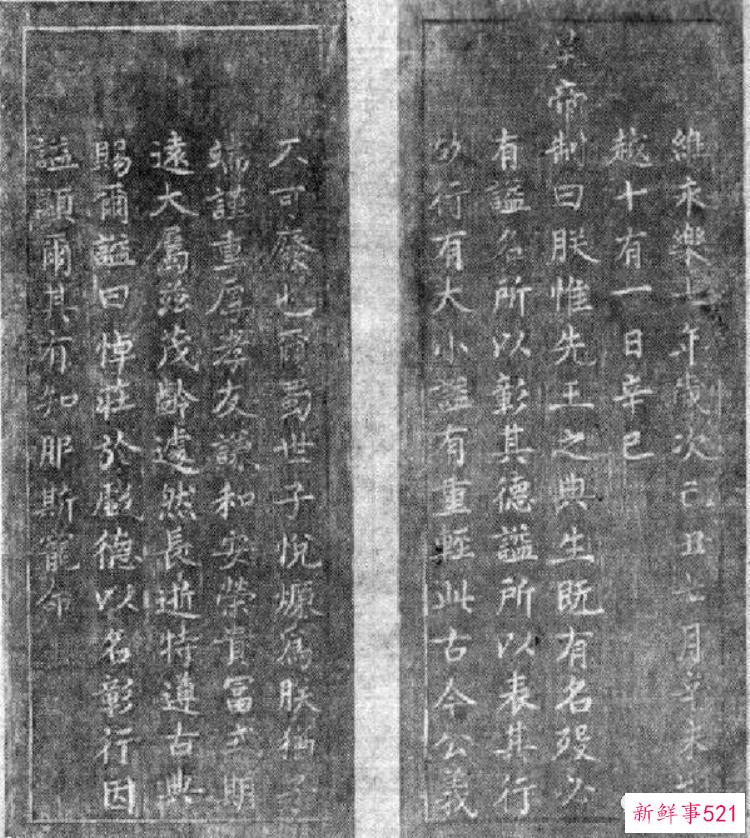 維永樂七年歲次己丑七月辛未朔
越十有一日辛巳
皇帝制曰朕惟先王之典生既有名歿必
有諡名所以彰其德諡所以表其行
故行有大小諡有重輕此古今公義
不可廢也爾蜀世子悅燫為朕猶子
端謹重厚孝友謙和安榮貴富式期
遠大屬茲茂齡遽然長逝特遵古典
賜爾諡曰悼莊於戲德以名彰行因
諡顯爾其有知服斯寵命
新鮮事521